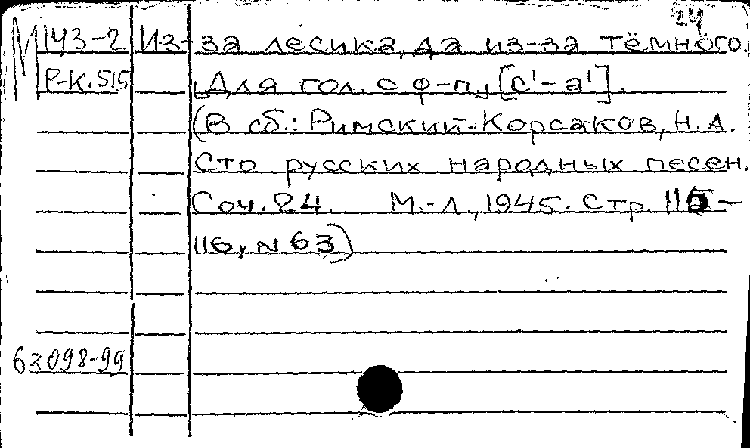 24
М 143-2 Из-за лесика, да из-за тёмного.
Р-К.515 Для гол. с ф-п., [c'-a'].
(В сб.: Римский-Корсаков, Н.А.
Сто русских народных песен.
Соч. 24. М.-Л., 1945. Стр. 115-
116, N 63)
62098-99